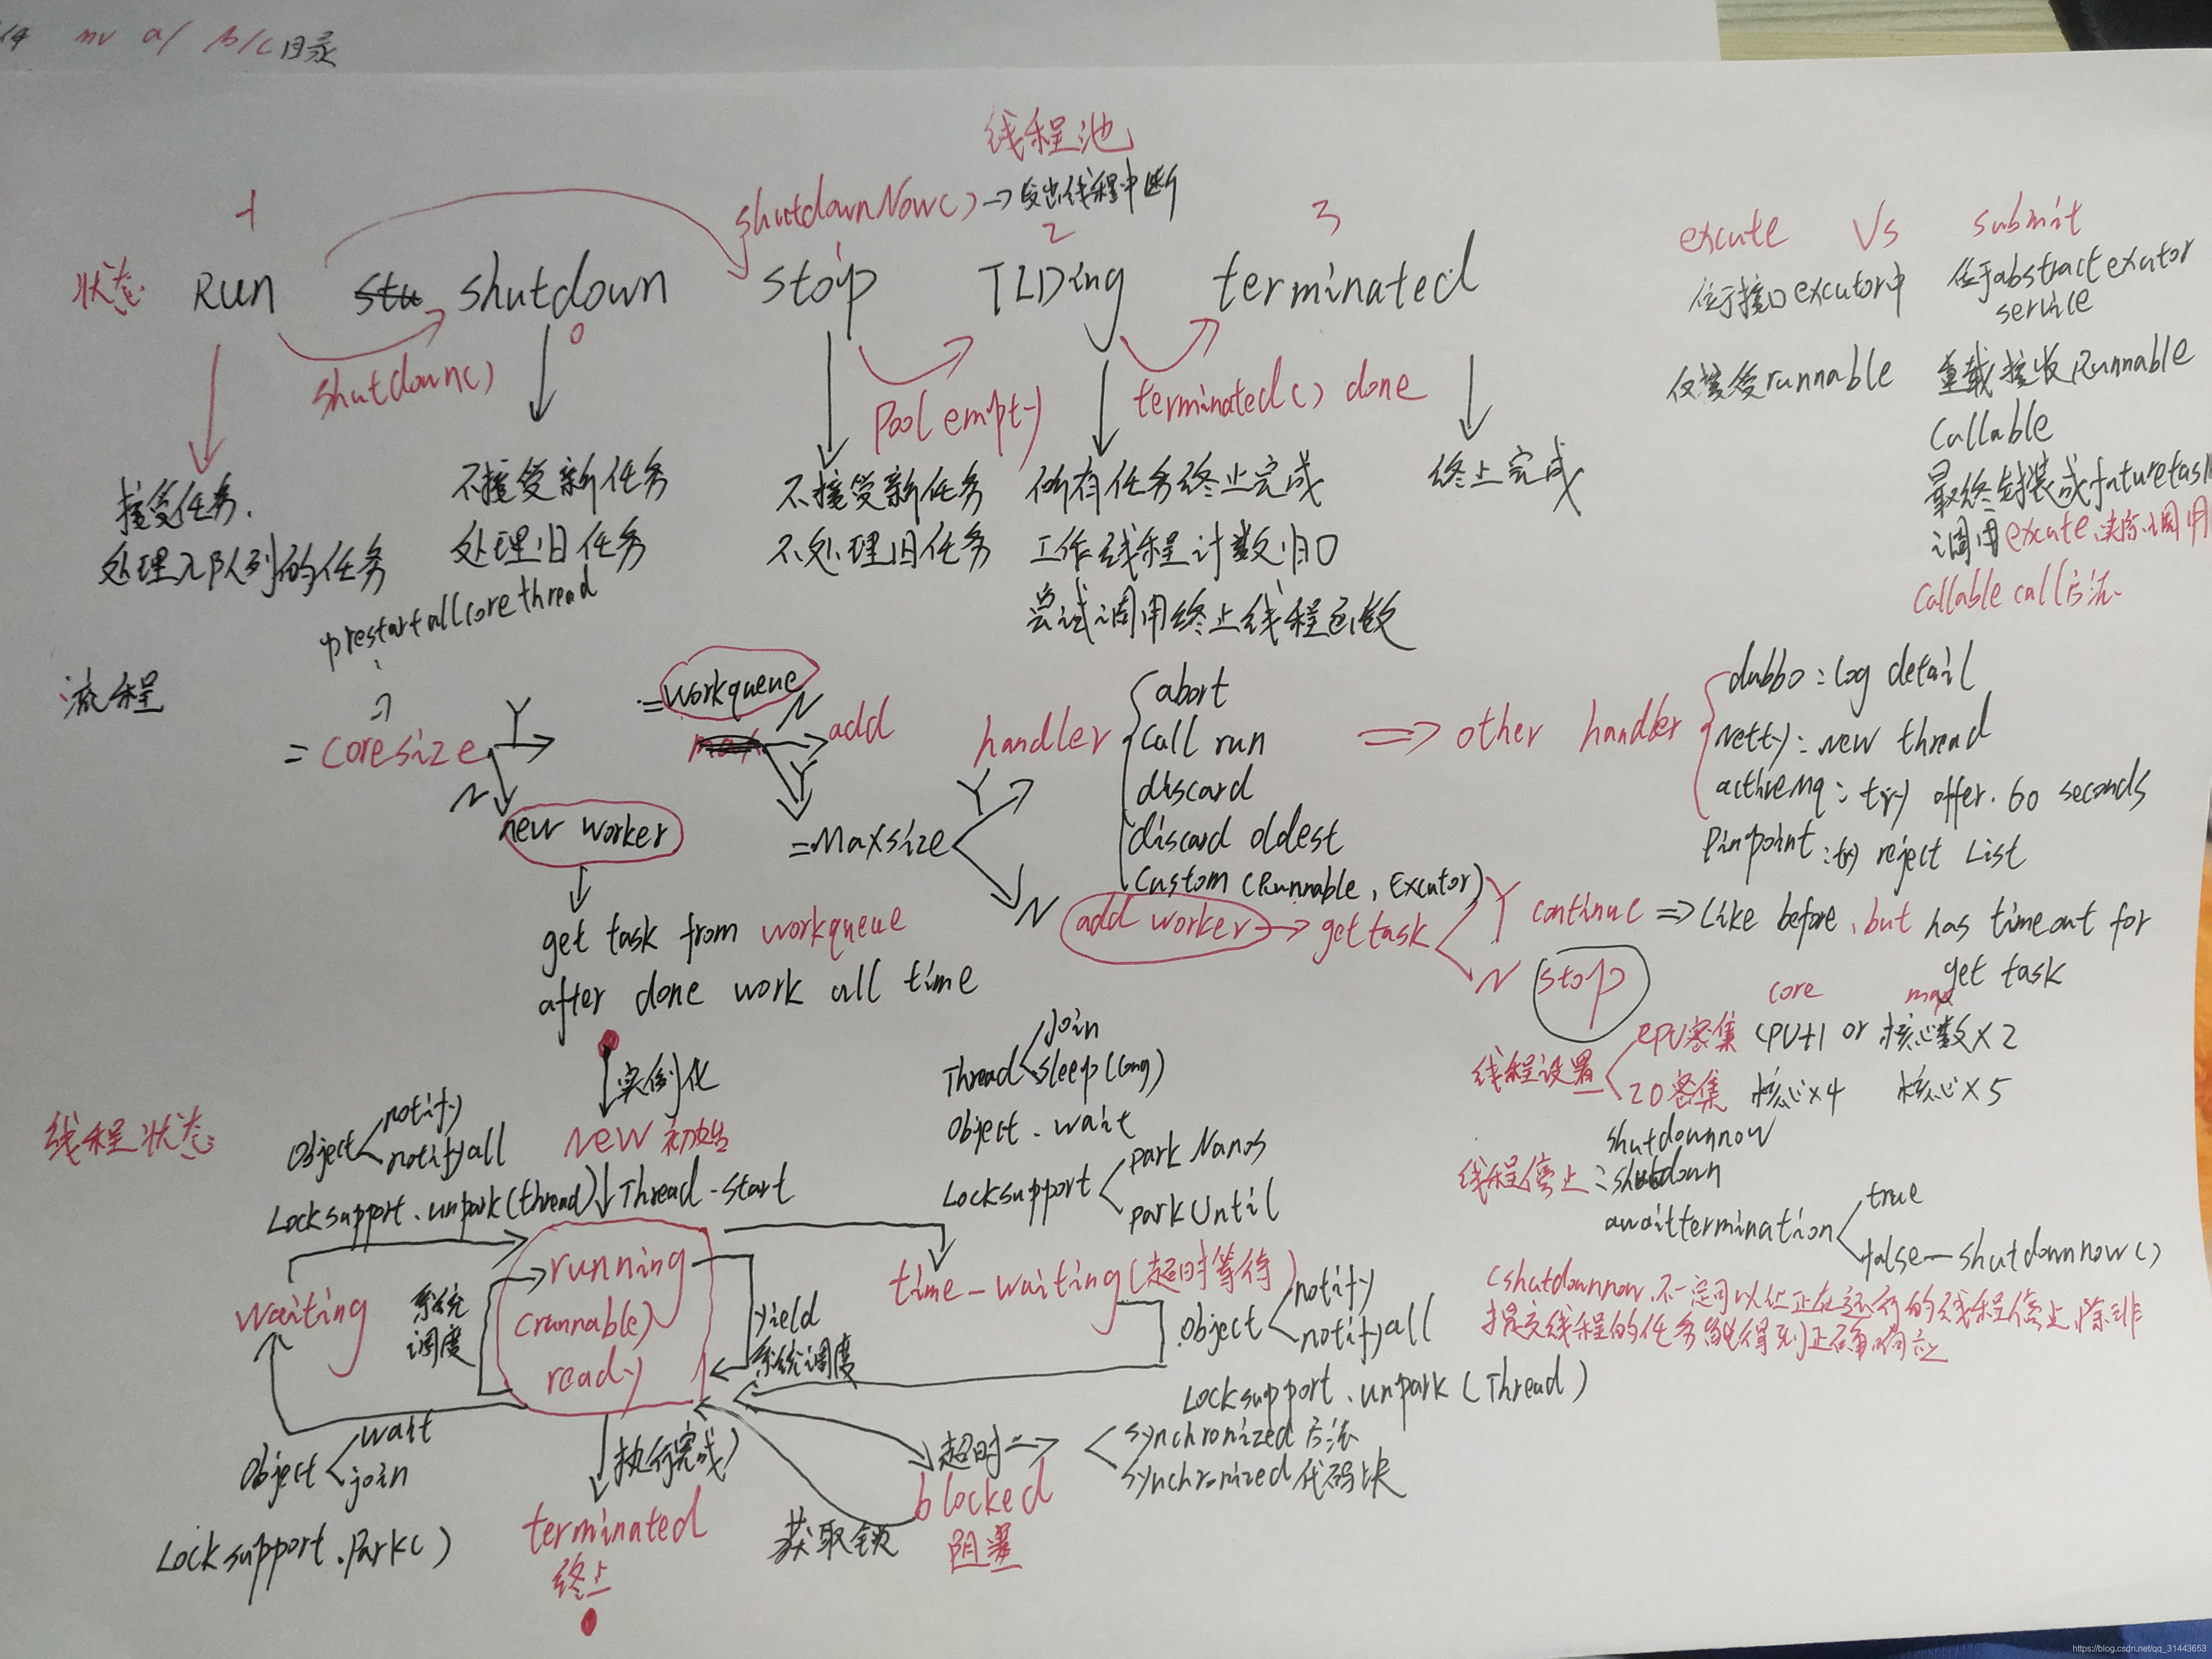 mv a/ b/c目录
线程池
shutdownNow() → 发出线程中断
-1
2
3
状态 Run shutdown stop TIDing terminated
0
shutdown()
Pool empty
terminated() done
接受任务.
处理入队列的任务
不接受新任务
处理旧任务
不接受新任务
不处理旧任务
所有任务终止完成
工作线程计数归0
尝试调用终止线程函数
终止完成
excute Vs submit
位于接口excutor中
位于abstractexcutor
service
仅接受runnable
重载接收Runnable
Callable
最终封装成futuretask
调用excute,实际调用
Callable call方法
prestartallcorethread
流程
= coresize Y
N
new worker
get task from workqueue
after done work all time
= workqueue N add
Y
= Maxsize Y
N
handler
abort
Call run
discard
discard oldest
Custom (Runnable, Excutor)
⇒ other handler
dubbo : log detail
Netty : new thread
activeMq : try offer. 60 seconds
Pinpoint : try reject List
add worker → get task
Y continue ⇒ Like before, but has timeout for
get task
N stop
core max
线程设置
CPU密集 CPU+1 or 核心数×2
IO密集 核心×4 核心×5
线程停止 :
shutdownnow
shutdown
awaittermination
true
false — shutdownnow()
(shutdownnow,不一定可以让正在运行的线程停止,除非
提交线程的任务能得到正确响应
实例化
线程状态
NEW 初始
Thread.start
Object
notify
notifyall
Locksupport.unpark(thread)
Thread
Join
sleep(long)
Object.wait
Locksupport
parkNanos
parkUntil
waiting
系统
调度
running
(runnable)
ready
yield
系统调度
time-waiting(超时等待)
Object
notify
notifyall
Locksupport.unpark(Thread)
Object
wait
join
Locksupport.Park()
执行完成
terminated
终止
获取锁
超时 ⇒
synchronized方法
synchronized代码块
blocked
阻塞
https://blog.csdn.net/qq_31443653